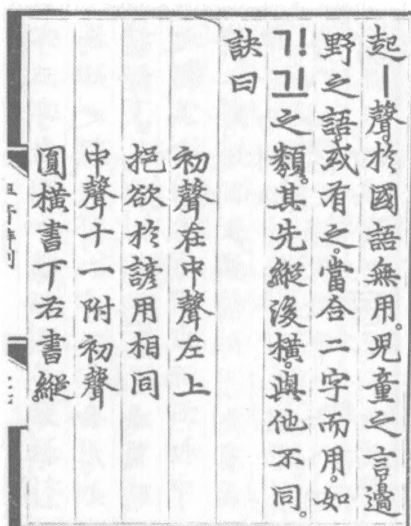 起ㅣ聲。於國語無用。兒童之言。邊
野之語。或有之。當合二字而用。如
ᄀᆝᄀᆜ之類。其先縱後橫。與他不同。
訣曰
初聲在中聲左上
挹欲於諺用相同
中聲十一附初聲
圓橫書下右書縱